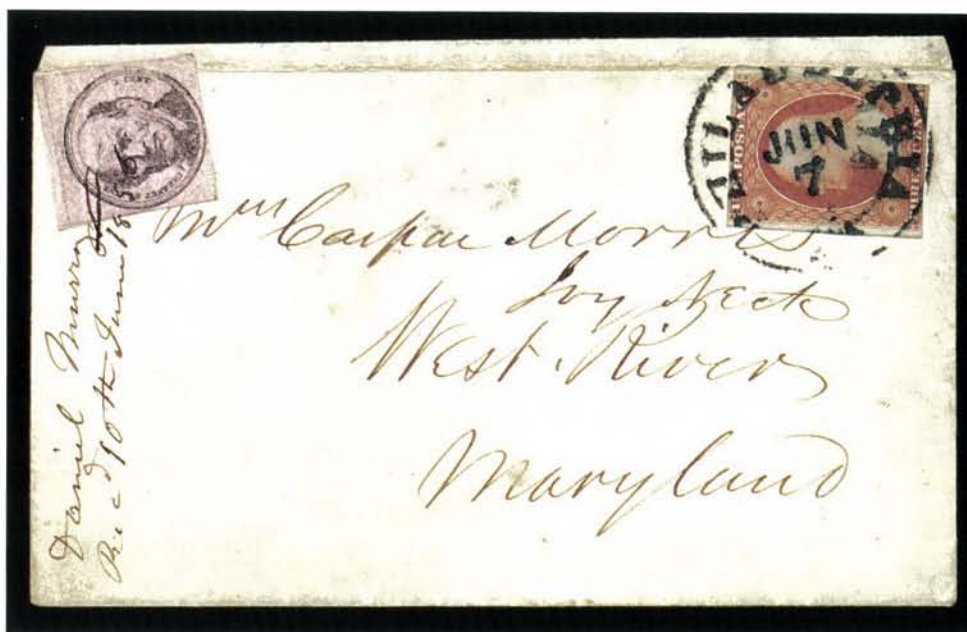 PHILADELPHIA
JUN
7
Mrs Caspar Morris
Ivy Neck
West River
Maryland
Daniel Murray
Recd 10th June 185